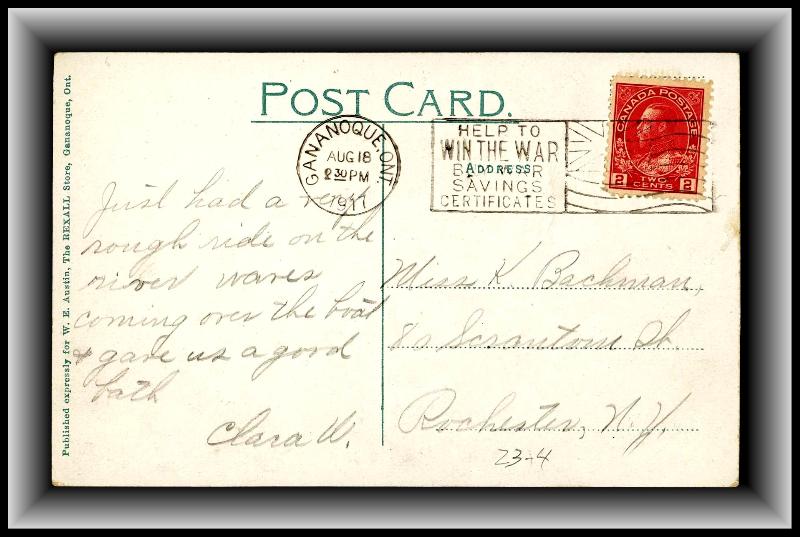 POST CARD.
GANANOQUE, ONT
AUG 18
2 30 PM
1917
HELP TO
WIN THE WAR
BUY WAR
SAVINGS
CERTIFICATES
ADDRESS
CANADA POSTAGE
2 TWO CENTS 2
Published expressly for W. E. Austin, The REXALL Store, Gananoque, Ont.
Just had a very
rough ride on the
river waves
coming over the boat
& gave us a good
bath
Clara W.
Miss K. Bachman,
Scrantom St.
Rochester, N.Y.
23-4